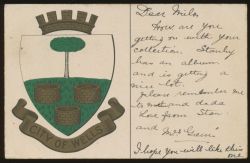 CITY OF WELLS
Dear Milo,
How are you
getting on with your
collection. Stanley
has an album
and is getting a
nice lot.
Please remember me
to and dada
Love from Stan
and
I hope you will like this